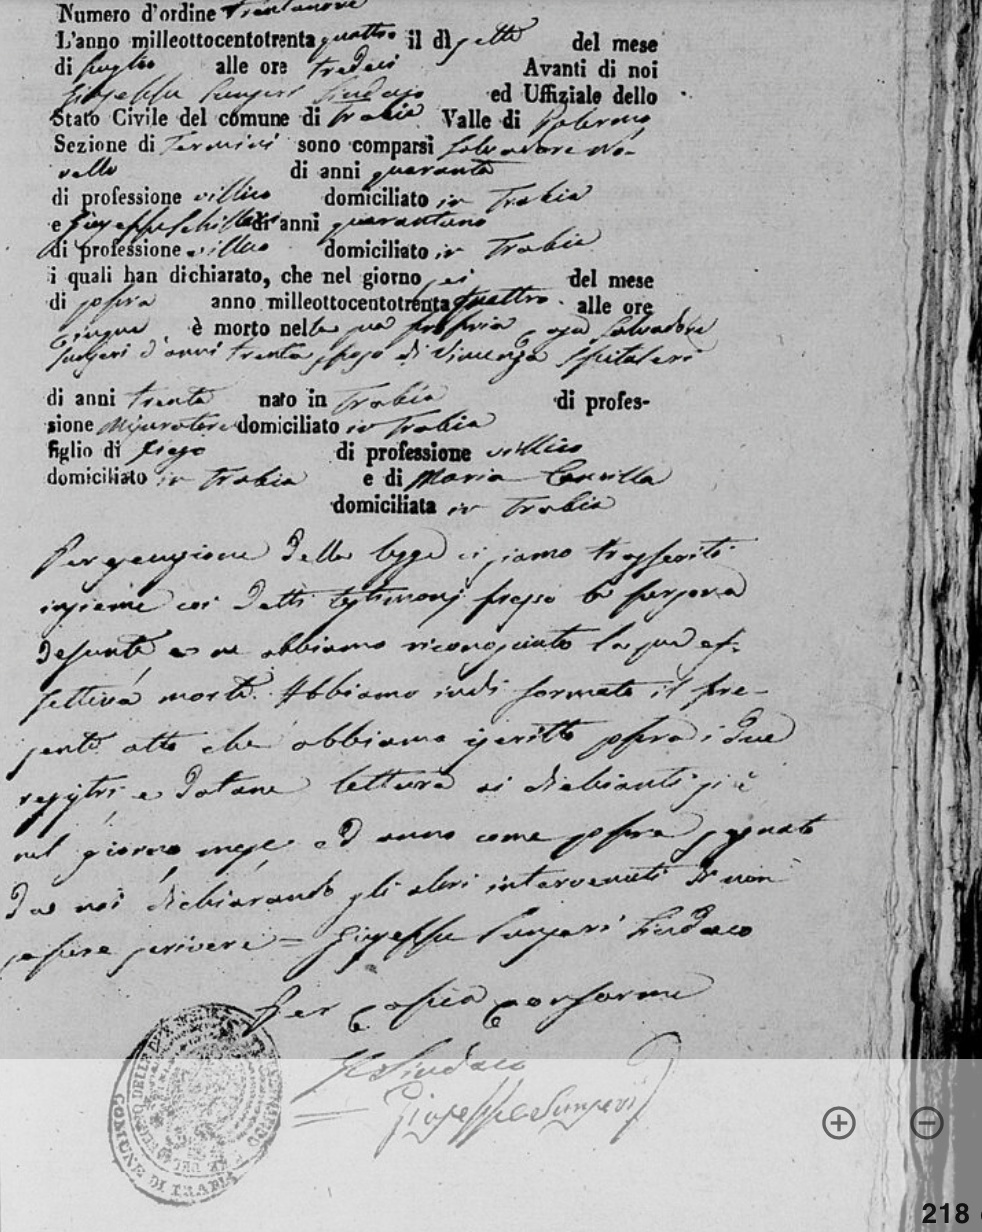 Numero d'ordine Trentanove
L'anno milleottocentotrenta quattro il dì sette del mese
di Luglio alle ore tredeci Avanti di noi
Giuseppe Sunseri Sindaco ed Uffiziale dello
Stato Civile del comune di Trabia Valle di Palermo
Sezione di Termini sono comparsi Salvadore No-
vello di anni quaranta
di professione villico domiciliato in Trabia
e Giuseppe di anni quarantuno
di professione villico domiciliato in Trabia
i quali han dichiarato, che nel giorno sei del mese
di sopra anno milleottocentotrenta quattro alle ore
cinque è morto nella sua propria casa Salvadore
Sunseri d'anni trenta sposo di Vincenza Spitaleri
di anni trenta nato in Trabia di profes-
sione Misuratore domiciliato in Trabia
figlio di Diego di professione villico
domiciliato in Trabia e di Maria
domiciliata in Trabia
Per esecuzione della legge ci siamo trasferiti
insieme coi detti testimonj presso la persona
defunta e ne abbiamo riconosciuto la sua ef-
fettiva morte. Abbiamo indi formato il pre-
sente atto che abbiamo iscritto sopra i due
registri e datane lettura ai dichianti si è
nel giorno mese ed anno come sopra segnato
da noi dichiarando gli altri intervenuti di non
sapere scrivere = Giuseppe Sunseri Sindaco
Per copia conforme
Il Sindaco
Giuseppe Sunseri
COMUNE DI TRABIA
218